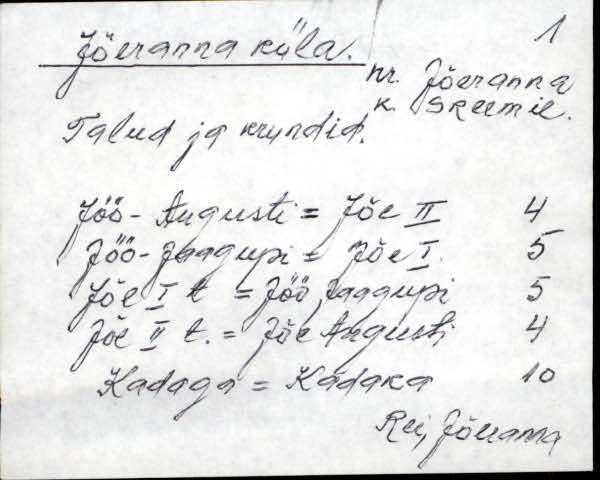 1
Jõeranna küla.
nr. Jõeranna
k. skeemil.
Talud ja krundid.
Jöö-Augusti = Jõe II 4
Jöö-Jaagupi = Jõe I. 5
Jõe I t = Jöö Jaagupi 5
Jõe II t. = Jõe Augusti 4
Kadaga = Kadaka 10
Rei, Jõeranna